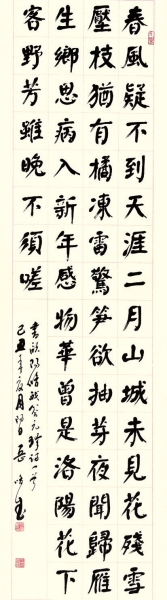 春風疑不到天涯二月山城未見花殘雪
壓枝猶有橘凍雷驚笋欲抽芽夜聞歸雁
生鄉思病入新年感物華曾是洛陽花下
客野芳雖晚不須嗟
書歐陽脩戲答元珍詩一首
己丑年夏月